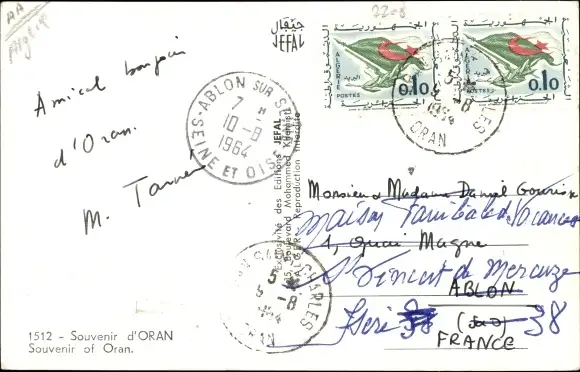 AA
Algérie
جيفال
JEFAL
ALGERIE
البريد
POSTES
0,10
ALGERIE
البريد
POSTES
0,10
5
-8
1964
CHARLES
ORAN
ABLON SUR SEINE
7
10-8
1964
SEINE ET OISE
Amical bonjour
d'Oran.
M.
Exclusivité des Editions JEFAL
Boulevard Mohammed Khemisti
ALGER - Reproduction interdite
Monsieur & Madame Daniel
Maison Familiale de Vacances
1, Quai Magne
St Vincent de Mercuze
ABLON
Isère 38 (S&O) 38
FRANCE
5
-8
1964
CHARLES
ORAN
1512 - Souvenir d'ORAN
Souvenir of Oran.